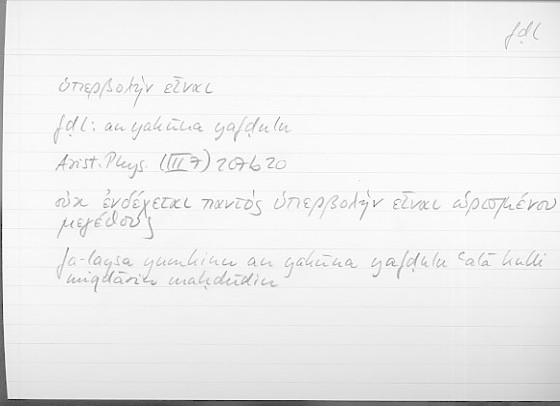 fḍl
ὑπερβολὴν εἶναι
fḍl: an yakūna yafḍulu
Arist. Phys. (III 7) 207b20
οὐκ ἐνδέχεται παντὸς ὑπερβολὴν εἶναι ὡρισμένου
μεγέθους
fa-laysa yumkinu an yakūna yafḍulu ʿalā kulli
miqdārin maḥdūdin